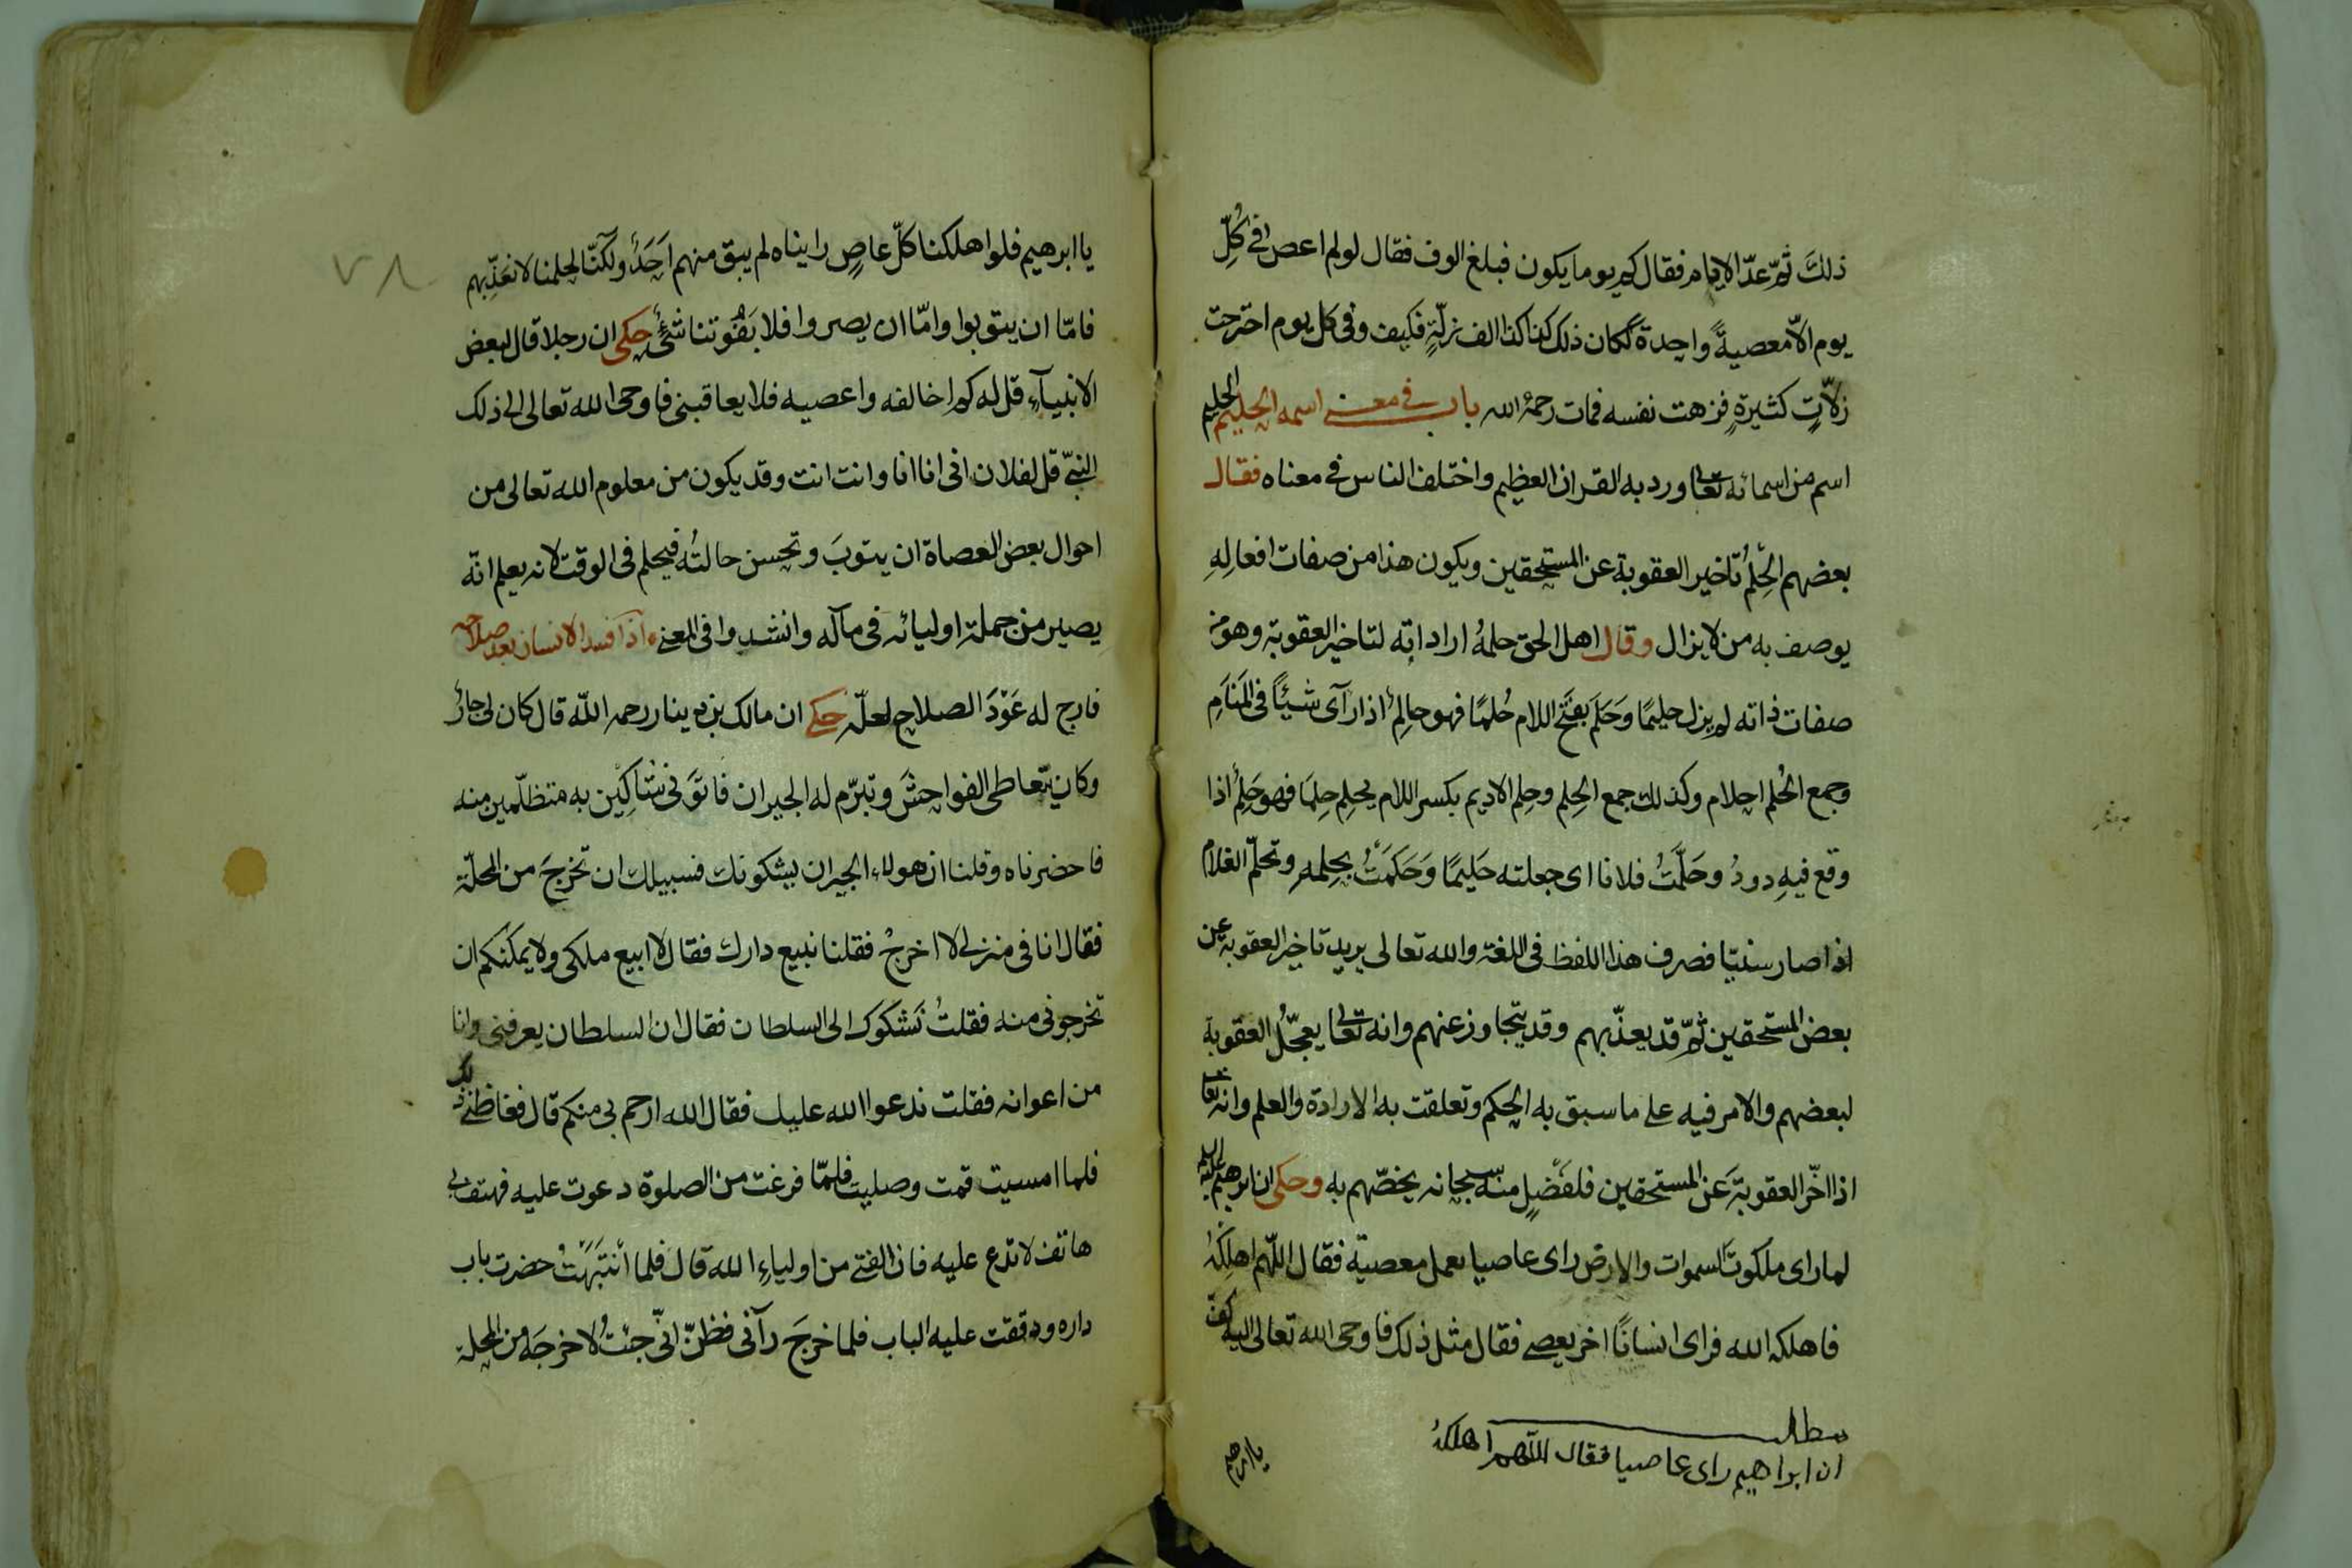 ذلك ثمّ عدّ الايام فقال كم يوما يكون فبلغ الوف فقال لو لم اعص في كُلّ
يوم الاّ معصيةً واحدة لكان ذلك كذا كذا الف زلّةٍ فكيف وفى كل يوم اجترحت
زلاّتٍ كثيرةٍ فزهت نفسه فمات رحمهُ الله باب في معنى اسمه الحليم الحليم
اسم من اسمائه تعالى ورد به القران العظيم واختلف الناس في معناه فقال
بعضهم الحِلمُ تاخير العقوبة عن المستحقين ويكون هذا من صفات افعالِهِ
يوصف به من لا يزال وقال اهل الحق حلمهُ اراداته لتاخير العقوبة وهو من
صفات ذاته لم يزل حليمًا وَحَلَم بفتح اللام حُلمًا فهو حالِمٌ اذا رآى شيئًا فى المَنَامِ
وجمع الحُلم احلام وكذلك جمع الحِلم وحلِم الاديم بكسر اللام يحلم حِلمًا فهو حَلِمٌ اذا
وقع فيهِ دودُ وحَلَّمتُ فلانا اى جعلته حَليمًا وَحَكَمَتُ بحِلمهِ وتحلّم الغلام
اذا صار سنيّا فصرف هذا اللفظ فى اللغة والله تعالى يريد تاخير العقوبة عن
بعض المستحقين ثمّ قد يعذّبهم وقد يتجاوز عنهم وانه تعالى يعجّلُ العقوبة
لبعضهم والامر فيه على ما سبق به الحكم وتعلقت به الارادة والعلم وانه تعالى
اذا اخّر العقوبة عن المستحقين فلفضلٍ منه سبحانه يخصّهم به وحكى ان ابرهيم عليه السلم
لما راى ملكوت السموات والارض راى عاصيا يعمل معصية فقال اللّهم اهلِكهُ
فاهلكه الله فراى انسانًا اخر يعصى فقال مثل ذلك فاوحى الله تعالى اليه كف
مطلب
ان ابراهيم راى عاصيا فقال اللهم اهلكهُ
يا ابرهيم
٧٨
يا ابرهيم فلو اهلكنا كلّ عاصٍ رايناه لم يبق منهم اَحَدٌ ولكنّا لحلمنا لا نعَذِّبهم
فامّا ان يتوبوا وامّا ان يصروا فلا يَفُوتنا شئٌ حكى ان رجلا قال لبعض
الانبيآء قل له كم اخالفه واعصيه فلا يعاقبنى فاوحى الله تعالى الى ذلك
النبىّ قل لفلان انى انا انا وانت انت وقد يكون من معلوم الله تعالى من
احوال بعض العصاة ان يتوبَ وتحسن حالتُه فيحلم فى الوقت لانه يعلم انّه
يصير من جملة اوليائه فى مآله وانشدوا فى المعنى اذا فسد الانسان بعد صلاحه
فارج له عَوْدَ الصلاح لعلّه حكى ان مالك بن دينار رحمه اللّه قال كان لى جارٌ
وكان يتعاطى الفواحش وتبرّم له الجيران فاتَوَنى شَاكِيْن به متظلّمين منه
فاحضرناه وقلنا ان هولاء الجيران يشكونك فسبيلك ان تخرجَ من المحلّة
فقال انا فى منزلى لا اخرجُ فقلنا نبيع دارك فقال لا ابيع ملكى ولا يمكنكم ان
تخرجونى منه فقلتُ نَشكوك الى السلطان فقال ان السلطان يعرفنى وانا
من اعوانه فقلت ندعوا الله عليك فقال الله ارحم بى منكم قال فغاظنى ذلك
فلما امسيت قمت وصليت فلمّا فرغت من الصلوة دعوت عليه فهتف بى
هاتف لا تدع عليه فان الفتى من اولياءِ الله قال فلما أنتبَهتُ حضرت باب
داره ودققت عليه الباب فلما خرجَ رآنى فظنّ انّى جئتُ لاخرجَهُ من المحلة